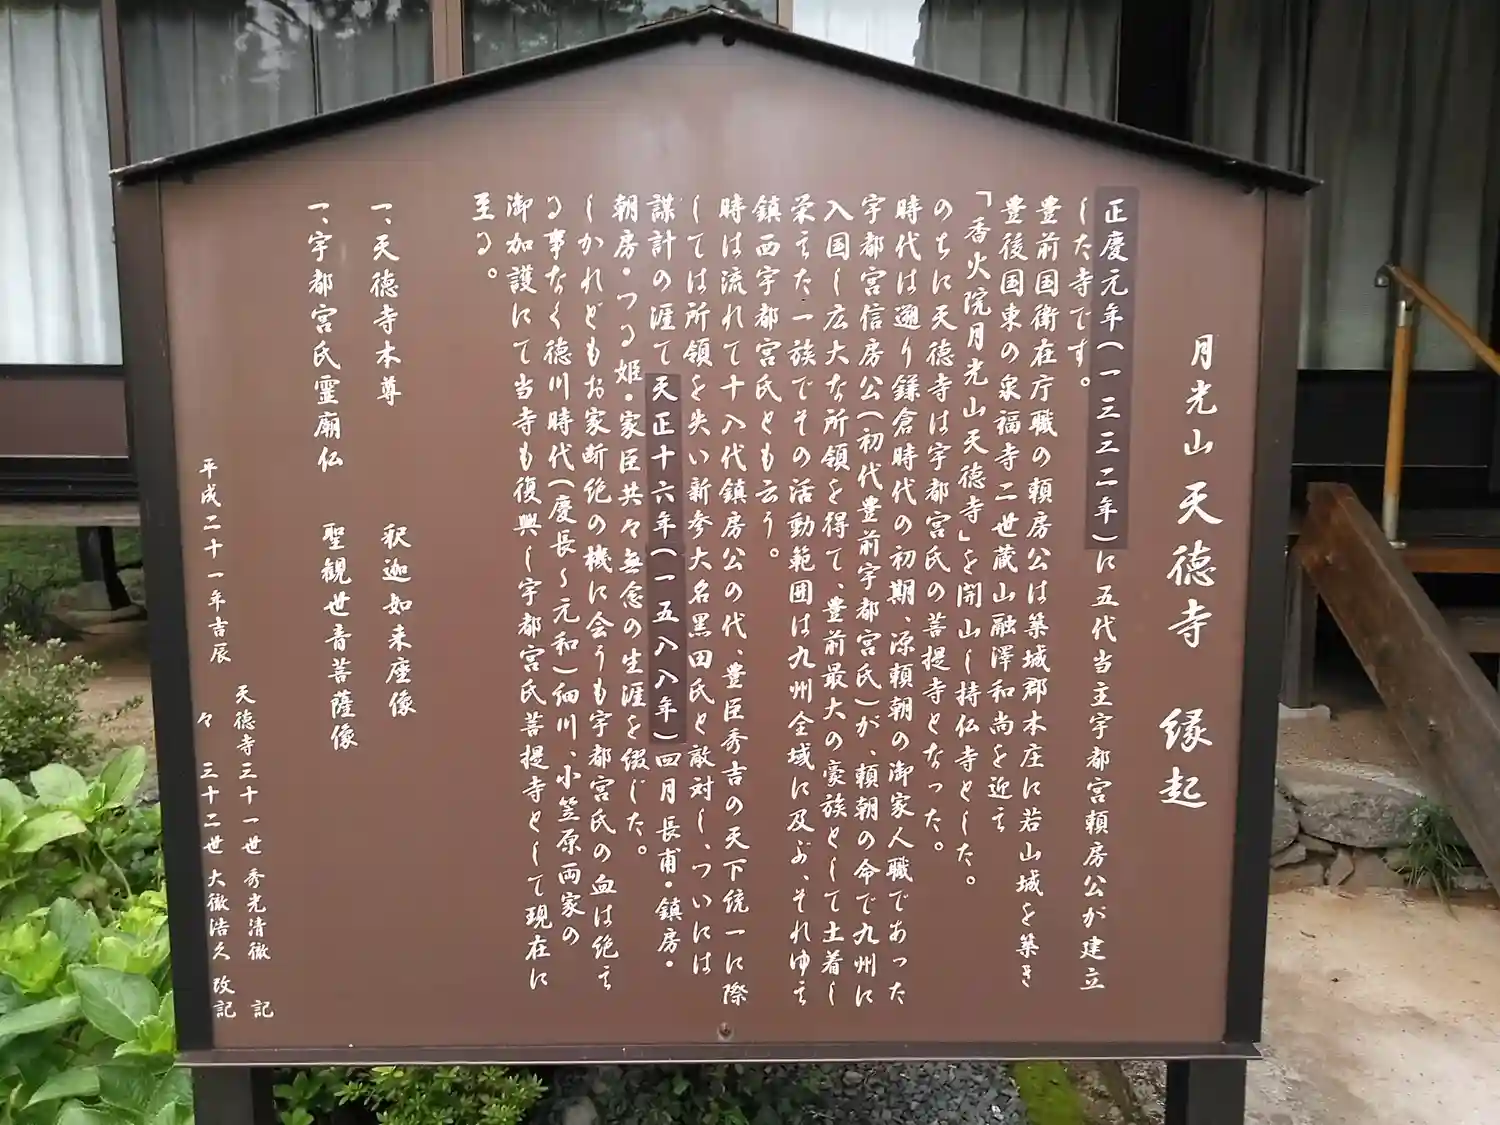 月光山 天徳寺 縁起
正慶元年(一三三二年)に五代当主宇都宮頼房公が建立
した寺です。
豊前国衛在庁職の頼房公は築城郡本庄に若山城を築き
豊後国東の泉福寺二世蔵山融澤和尚を迎え
「香火院月光山天徳寺」を開山し持仏寺とした。
のちに天徳寺は宇都宮氏の菩提寺となった。
時代は遡り鎌倉時代の初期、源頼朝の御家人職であった
宇都宮信房公(初代豊前宇都宮氏)が、頼朝の命で九州に
入国し広大な所領を得て、豊前最大の豪族として土着し
栄えた一族でその活動範囲は九州全域に及ぶ、それゆえ
鎮西宇都宮氏とも云う。
時は流れて十八代鎮房公の代、豊臣秀吉の天下統一に際
しては所領を失い新参大名黒田氏と敵対し、ついには
謀計の涯て天正十六年(一五八八年)四月長甫・鎮房・
朝房・つる姫・家臣共々無念の生涯を綴じた。
しかれどもお家断絶の機に会うも宇都宮氏の血は絶え
る事なく徳川時代(慶長〜元和)細川、小笠原両家の
御加護にて当寺も復興し宇都宮氏菩提寺として現在に
至る。
一、天徳寺本尊 釈迦如来座像
一、宇都宮氏霊廟仏 聖観世音菩薩像
天徳寺三十一世 秀光清徹 記
平成二十一年吉辰 々 三十二世 大徹浩久 改記